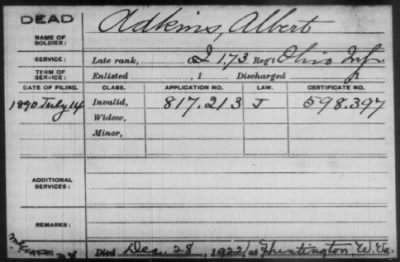 DEAD
NAME OF SOLDIER: Adkins, Albert
SERVICE: Late rank, I 173 Reg't Ohio Inf.
TERM OF SERVICE: Enlisted , 1 Discharged , 1
DATE OF FILING. CLASS. APPLICATION NO. LAW. CERTIFICATE NO.
1890 July 14 Invalid, 817.213 J 598.397
Widow,
Minor,
ADDITIONAL SERVICES:
REMARKS:
Died Dec. 28, 1922, at Huntington, W. Va.